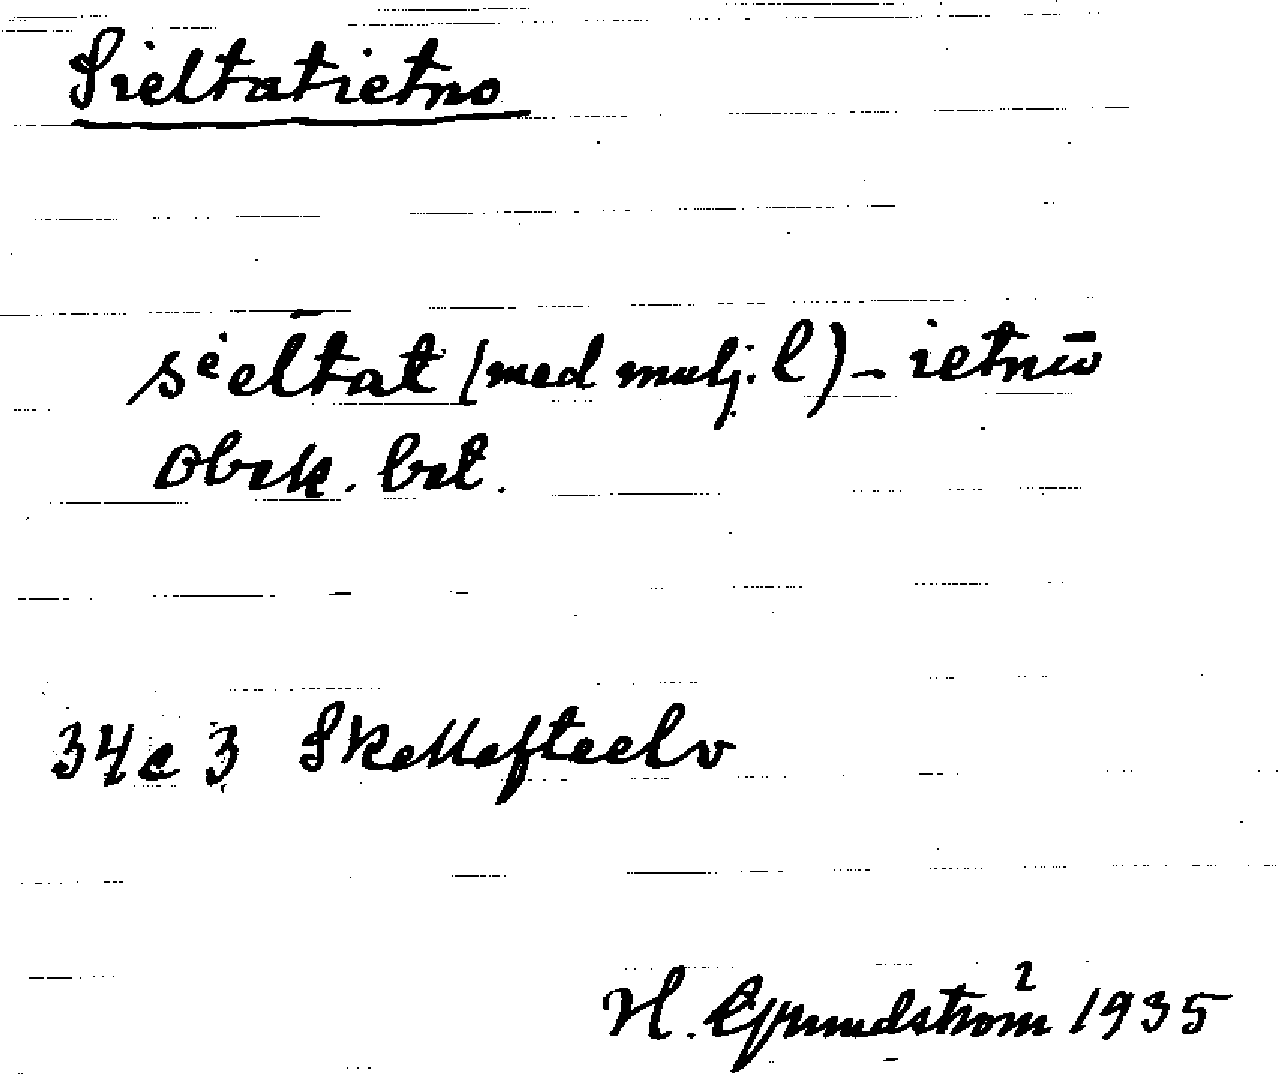 Sieltatietno
sieltat (med mulj. l) - ietnū
Obek. bet.
34 c 3 Skellefteelv
H. Grundström 1935